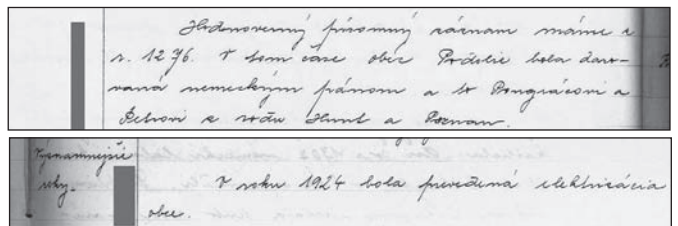 Hodnoverný písomný záznam máme z
r. 1276. V tom čase obec Podolie bola daro-
vaná nemeckým pánom a to Pongrácovi a
Petrovi z rodu Hunt a Poznan.
Významnejšie
roky.
V roku 1924 bola prevedená elektrizácia
obce.